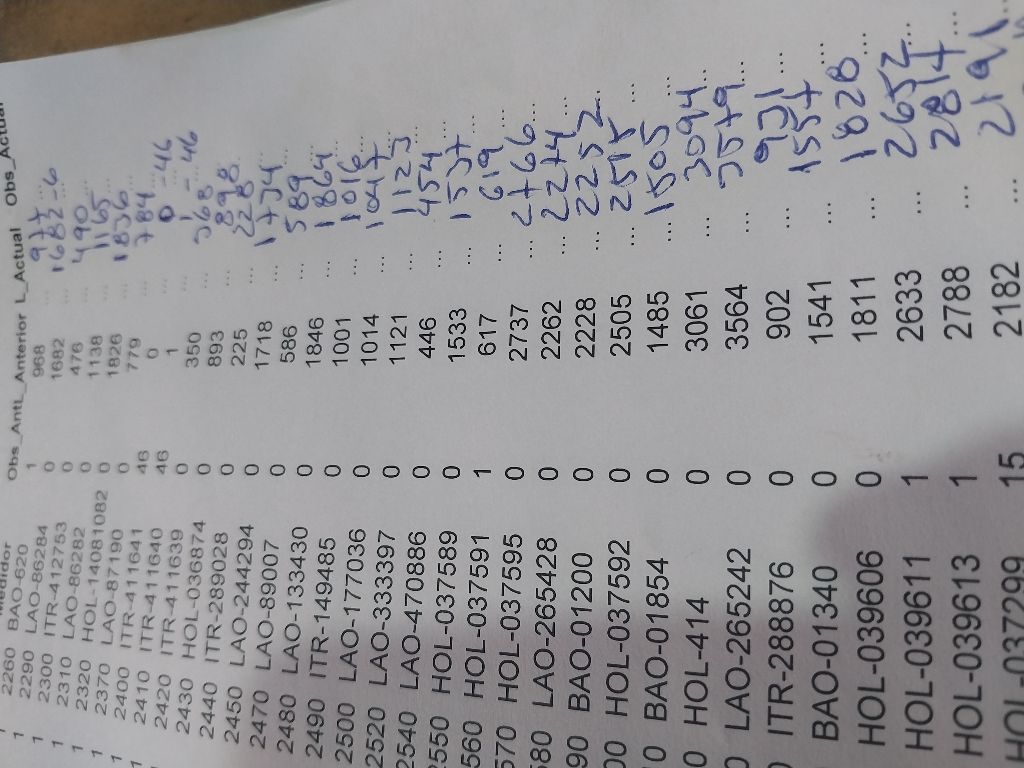 Medidor Obs_Ant L_Anterior L_Actual Obs_Actual
1 2260 BAO-620 1 968 ... 977 ...
1 2290 LAO-86284 0 1682 ... 1682 -6
1 2300 ITR-412753 0 476 ... 490 ...
1 2310 LAO-86282 0 1138 ... 1165 ...
1 2320 HOL-14081082 0 1826 ... 1836 ...
1 2370 LAO-87190 0 779 ... 784 ...
1 2400 ITR-411641 46 0 ... 0 -46
1 2410 ITR-411640 46 1 ... 1 -46
1 2420 ITR-411639 0 350 ... 368 ...
1 2430 HOL-036874 0 893 ... 898 ...
1 2440 ITR-289028 0 225 ... 228 ...
1 2450 LAO-244294 0 1718 ... 1734 ...
1 2470 LAO-89007 0 586 ... 589 ...
2480 LAO-133430 0 1846 ... 1864 ...
2490 ITR-149485 0 1001 ... 1016 ...
2500 LAO-177036 0 1014 ... 1047 ...
2520 LAO-333397 0 1121 ... 1123 ...
2540 LAO-470886 0 446 ... 454 ...
2550 HOL-037589 0 1533 ... 1537 ...
560 HOL-037591 1 617 ... 619 ...
570 HOL-037595 0 2737 ... 2766 ...
580 LAO-265428 0 2262 ... 2274 ...
90 BAO-01200 0 2228 ... 2252 ...
00 HOL-037592 0 2505 ... 2517 ...
0 BAO-01854 0 1485 ... 1505 ...
0 HOL-414 0 3061 ... 3094 ...
0 LAO-265242 0 3564 ... 3579 ...
ITR-288876 0 902 ... 931 ...
BAO-01340 0 1541 ... 1557 ...
HOL-039606 0 1811 ... 1828 ...
HOL-039611 1 2633 ... 2652 ...
HOL-039613 1 2788 ... 2817 ...
HOL-037299 15 2182 ... 2191 ...